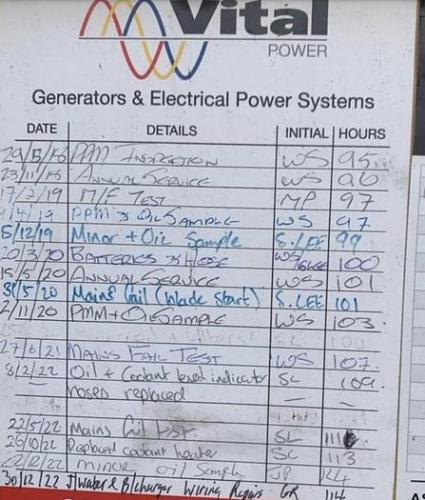 Vital
POWER
Generators & Electrical Power Systems
DATE DETAILS INITIAL HOURS
29/5/18 PPM INSPECTION WS 95
23/11/18 ANNUAL SERVICE WS 96
17/2/19 M/F TEST MP 97
/4/19 PPM & OIL SAMPLE WS 97
5/12/19 Minor + Oil Sample S.LEE 99
20/3/20 BATTERIES & HOSE WS 100
15/5/20 ANNUAL SERVICE WS 101
31/5/20 Mains fail (Wade Start) S.LEE 101
2/11/20 PMM + OIL SAMPLE WS 103
27/6/21 MAINS FAIL TEST WS 107.
8/2/22 Oil + Coolant level indicator SL 109.
— hoses replaced — —
22/5/22 Mains fail test SL 111
26/10/22 Replaced coolant heater SC 113
22/12/22 minor oil sample JP 114
30/12/22 J/Water & B/charger Wiring Repairs GR 114